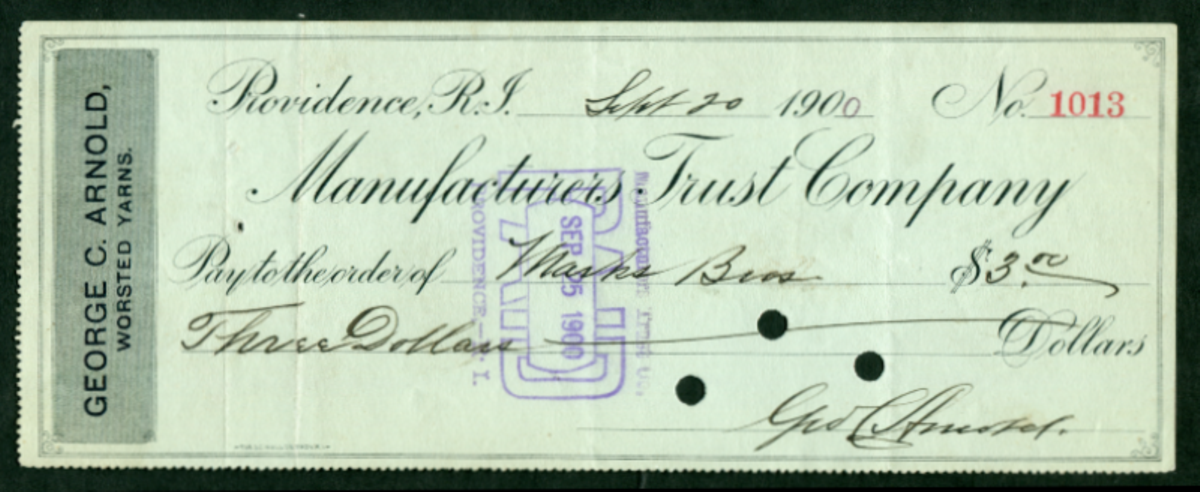 GEORGE C. ARNOLD,
WORSTED YARNS.
Providence, R.I. Sept 20 1900 No. 1013
Manufacturers Trust Company
Pay to the order of Marks Bros $3.00
Three Dollars Dollars
Geo C Arnold.
Manufacturers Trust Co.
PAID
SEP 25 1900
PROVIDENCE—R. I.